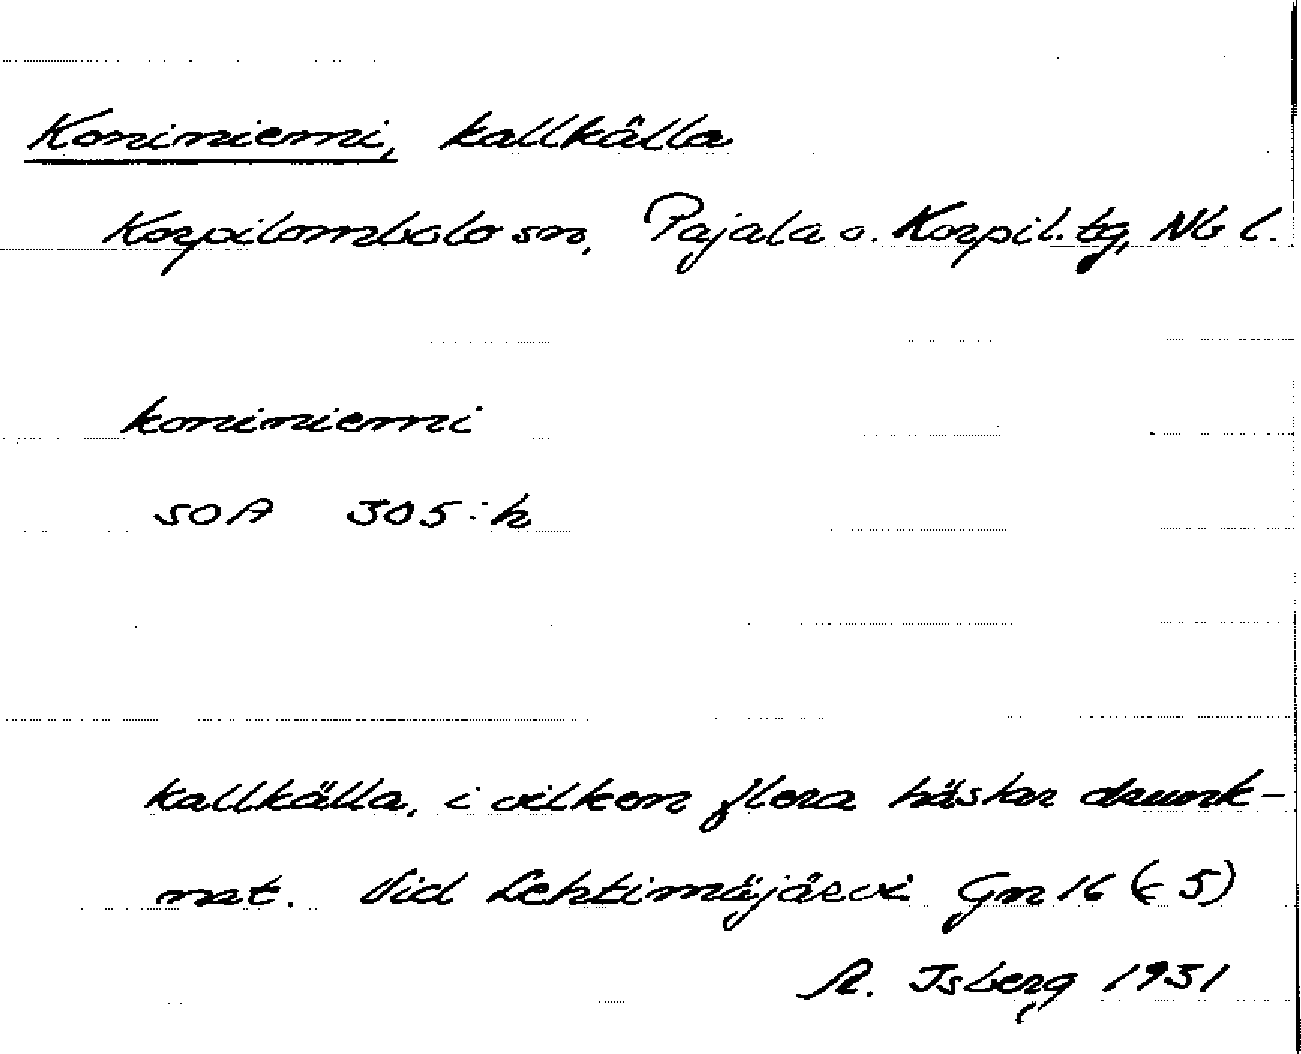 Koniniemi, kallkälla
Korpilombolo sn, Pajala o. Korpil. tg, Nb l.
koniniemi
SOA 305:k
kallkälla, i vilken flera hästar drunk-
nat. Vid Lehtimäjärvi Gn 16 (c 5)
A. Isberg 1931